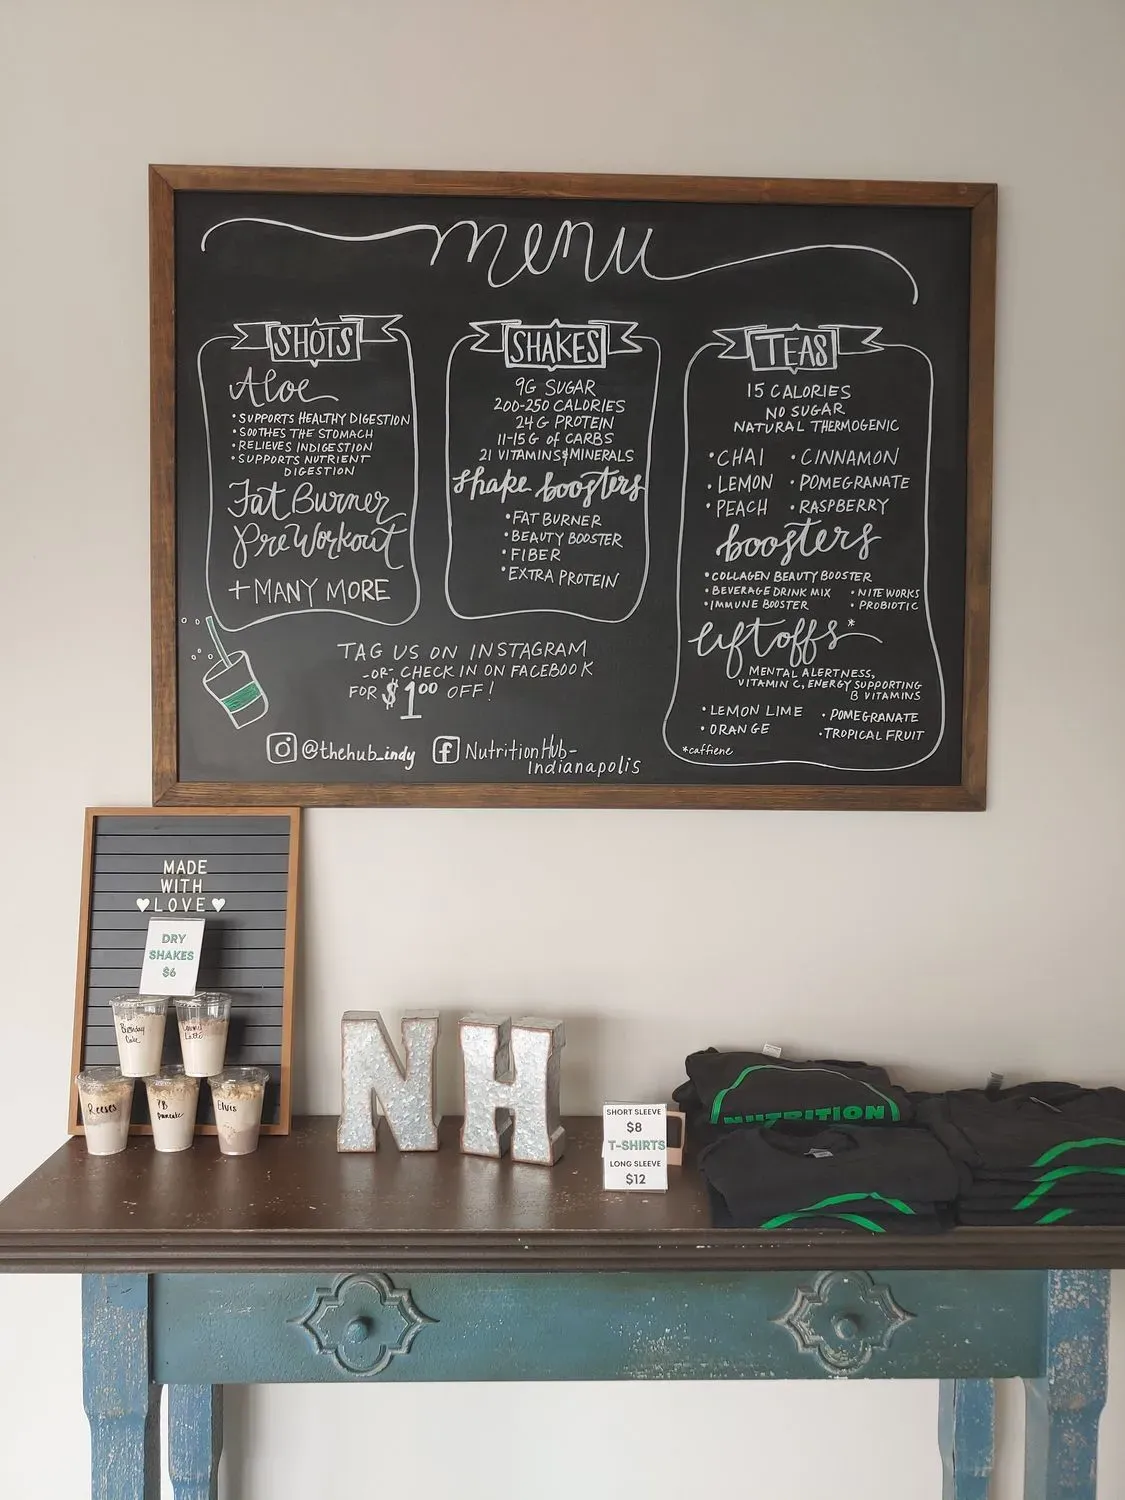 menu
SHOTS
Aloe
• SUPPORTS HEALTHY DIGESTION
• SOOTHES THE STOMACH
• RELIEVES INDIGESTION
• SUPPORTS NUTRIENT
DIGESTION
Fat Burner
PreWorkout
+ MANY MORE
SHAKES
9G SUGAR
200-250 CALORIES
24G PROTEIN
11-15G of CARBS
21 VITAMINS & MINERALS
shake boosters
• FAT BURNER
• BEAUTY BOOSTER
• FIBER
• EXTRA PROTEIN
TEAS
15 CALORIES
NO SUGAR
NATURAL THERMOGENIC
• CHAI • CINNAMON
• LEMON • POMEGRANATE
• PEACH • RASPBERRY
boosters
• COLLAGEN BEAUTY BOOSTER
• BEVERAGE DRINK MIX • NITEWORKS
• IMMUNE BOOSTER • PROBIOTIC
liftoffs*
MENTAL ALERTNESS,
VITAMIN C, ENERGY SUPPORTING
B VITAMINS
• LEMON LIME • POMEGRANATE
• ORANGE • TROPICAL FRUIT
*caffiene
TAG US ON INSTAGRAM
-OR- CHECK IN ON FACEBOOK
FOR $1.00 OFF!
@thehub_indy
f NutritionHub-
Indianapolis
MADE
WITH
♥LOVE♥
DRY
SHAKES
$6
Birthday
Cake
Latte
Reeses
PB
Pancake
Elvis
NH
SHORT SLEEVE
$8
T-SHIRTS
LONG SLEEVE
$12
NUTRITION